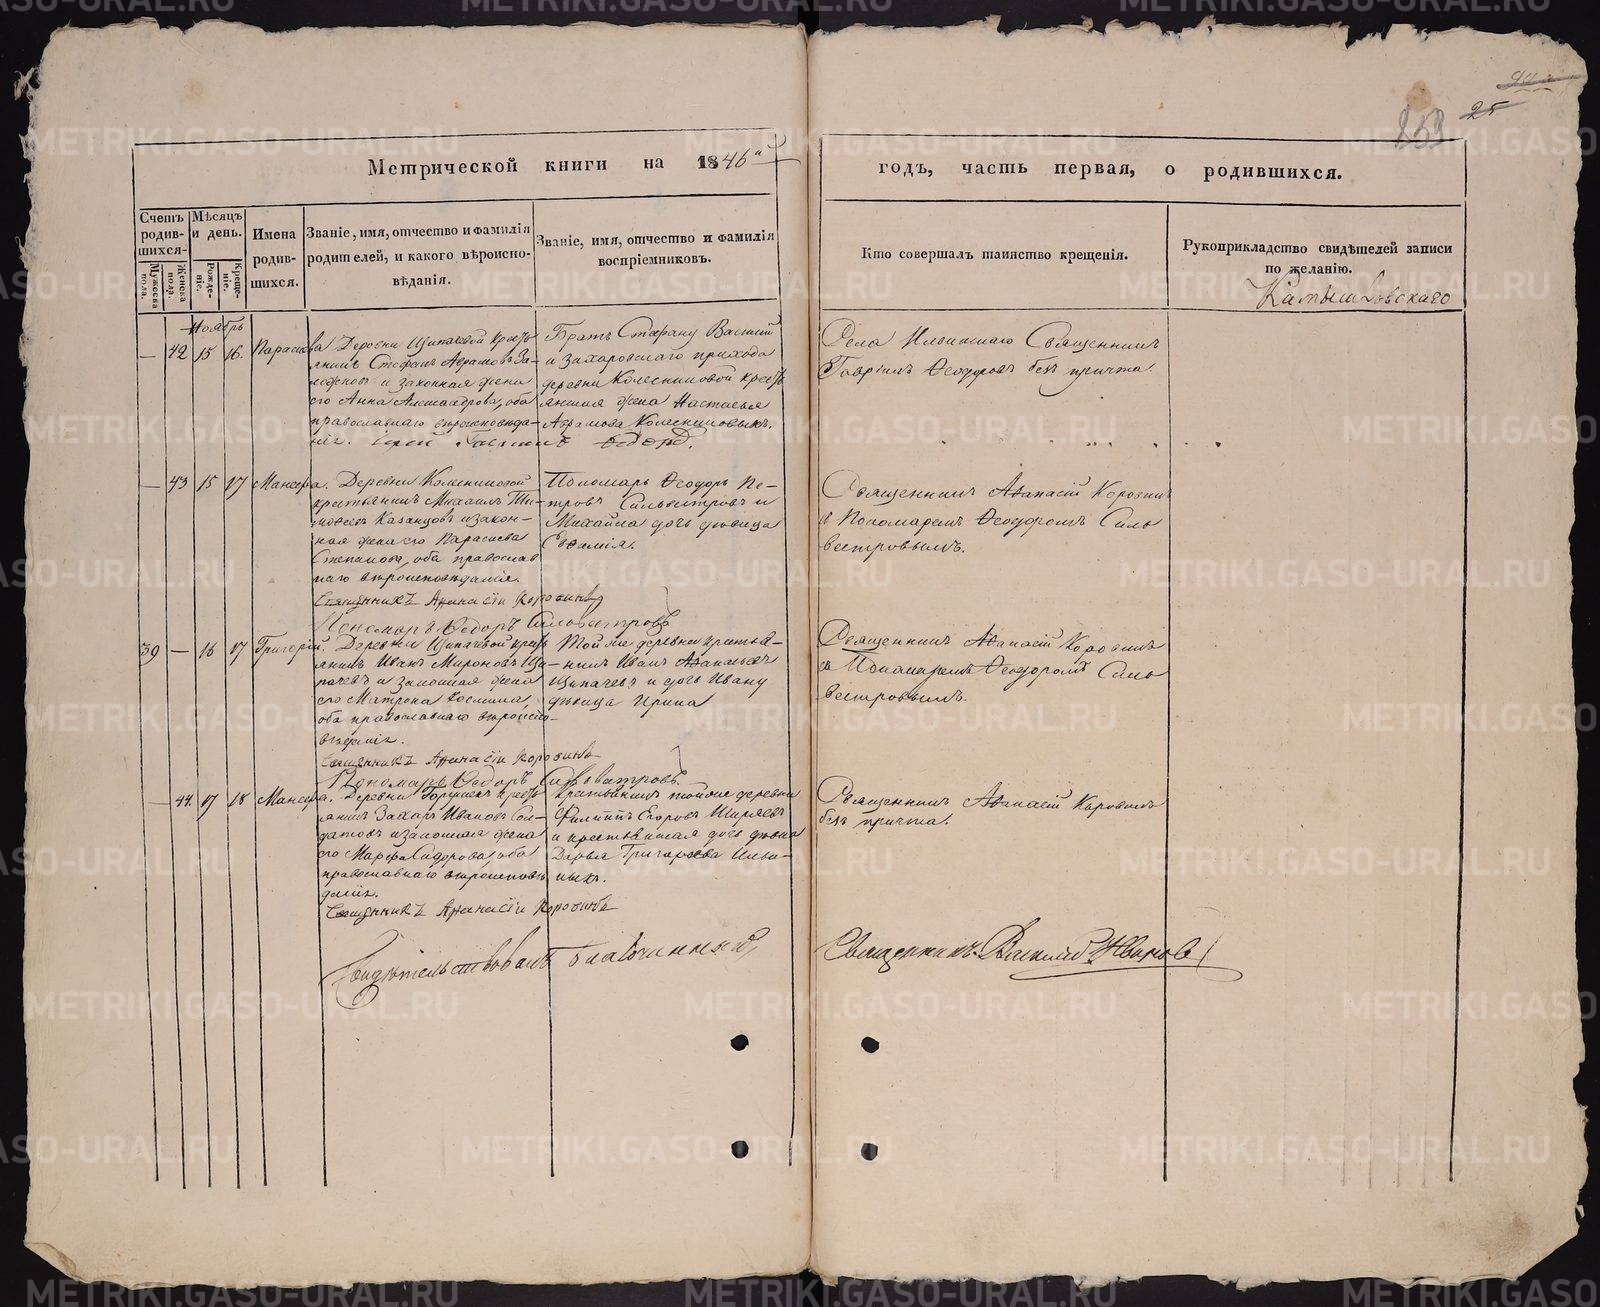 25
253
Метрической книги на 1846й
годъ, часть первая, о родившихся.
Счетъ родив-шихся.
Мужеска пола.
Женска пола.
Мѣсяцъ и день.
Рожде-ніе.
Креще-ніе.
Имена родив-шихся.
Званіе, имя, отчество и фамилія
родителей, и какого вѣроиспо-
вѣданія.
Званіе, имя, отчество и фамилія
воспріемниковъ.
Кто совершалъ таинство крещенія.
Рукоприкладство свидѣтелей записи
по желанію.
Камышловскаго
Ноябрь
— 42 15 16. Параскева
Деревни Щипачевой кресть
янинъ Стефанъ Аврамовъ За-
и законная жена
его Анна Александрова, оба
православнаго вѣроисповѣда-
нія.
Братъ Стефану Василий
и Захаровскаго прихода
деревни Колесниковой кресть
янская жена Настасья
Абрамова Колесниковыхъ.
Села Ильинскаго Священникъ
Гавріилъ Ѳеодоровъ безъ причта.
— 43 15 17
Деревни Колесниковой
крестьянинъ Михаилъ Ти-
моѳеевъ Казанцовъ и закон-
ная жена его Параскева
Степанова, оба православ
наго вѣроисповѣданія.
Священникъ Афанасiи Коровинъ
Пономаръ Ѳедоръ Силовестровъ
Пономарь Ѳеодоръ Пе-
тровъ Сильвестровъ и
Михайла дочь дѣвица
Священникъ Аѳанасій Коровинъ
съ Пономаремъ Ѳеодоромъ Силь
вестровымъ.
39 — 16 17 Григорій.
Деревни Щипачевой кресть
янинъ Иванъ Мироновъ Щи-
пачевъ и законная жена
его Матрона Космина,
оба православнаго вѣроиспо-
вѣданія.
Священникъ Афанасiи Коровинъ
Пономаръ Ѳедоръ Силовестровъ.
Той же деревни крестья-
нинъ Иванъ Аѳанасьевъ
Щипачевъ и дочь Ивану
дѣвица Ирина
Священникъ Аѳанасій Коровинъ
съ Пономаремъ Ѳеодоромъ Силь
вестровымъ.
— 44. 17 18
Деревни кресть
янинъ Захаръ Ивановъ Сол-
датовъ и законная жена
его Марфа Сидорова, оба
православнаго вѣроисповѣ
данія.
Священникъ Афанасiи Коровинъ
Крестьянинъ той же деревни
Филиппъ Егоровъ Ширяевъ
и крестьянская дочь дѣвка
Дарья Григорьева Ильи-
ныхъ.
Священникъ Аѳанасій Коровинъ
безъ причта.
Свидѣтельствовалъ Благочинный,
Священникъ Василий
METRIKI.GASO-URAL.RU